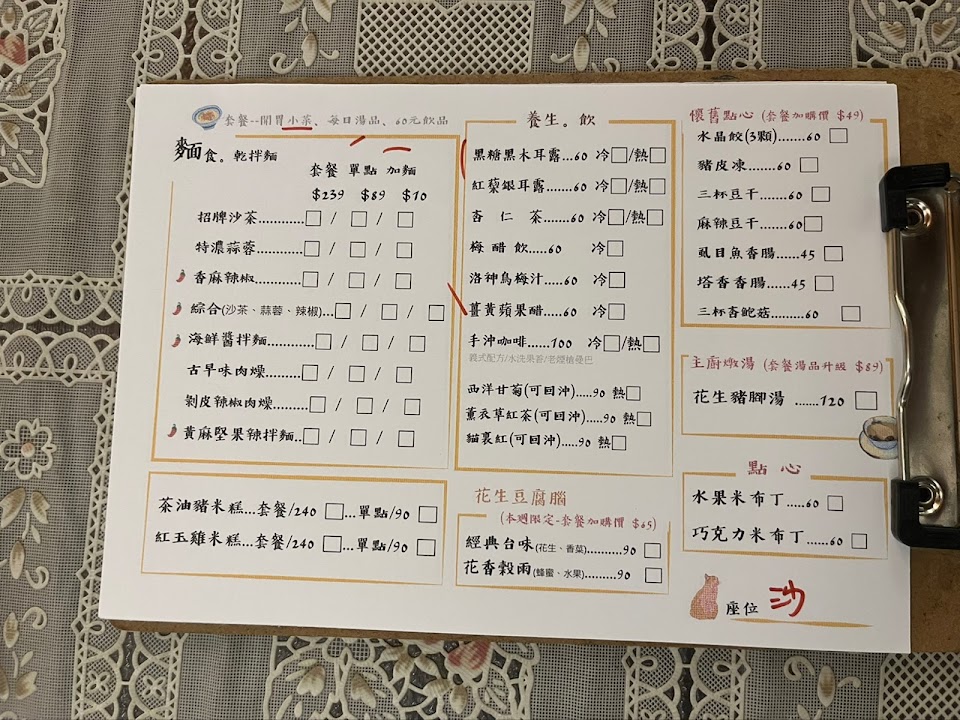 套餐--開胃小菜、每日湯品、60元飲品
麵食。乾拌麵
套餐 單點 加麵
$239 $89 $10
招牌沙茶...........□ / □ / □
特濃蒜蓉............□ / □ / □
香麻辣椒...........□ / □ / □
綜合(沙茶、蒜蓉、辣椒)...□ / □ / □
海鮮醬拌麵.........□ / □ / □
古早味肉燥..........□ / □ / □
剝皮辣椒肉燥.........□ / □ / □
黃麻堅果辣拌麵..□ / □ / □
茶油豬米糕...套餐/240 □...單點/90 □
紅玉雞米糕...套餐/240 □...單點/90 □
養生。飲
黑糖黑木耳露...60 冷□/熱□
紅藜銀耳露.......60 冷□/熱□
杏仁茶.......60 冷□/熱□
梅醋飲.....60 冷□
洛神烏梅汁.....60 冷□
薑黃蘋果醋.....60 冷□
手沖咖啡......100 冷□/熱□
義式配方/水洗果香/老煙槍曼巴
西洋甘菊(可回沖).....90 熱□
薰衣草紅茶(可回沖)....90 熱□
貓裏紅(可回沖).....90 熱□
花生豆腐腦
(本週限定-套餐加購價 $65)
經典台味(花生、香菜)..........90 □
花香穀雨(蜂蜜、水果).........90 □
懷舊點心 (套餐加購價 $49)
水晶餃(3顆)......60 □
豬皮凍......60 □
三杯豆干.......60 □
麻辣豆干.......60 □
虱目魚香腸.....45 □
塔香香腸......45 □
三杯杏鮑菇........60 □
主廚燉湯 (套餐湯品升級 $89)
花生豬腳湯 ......120 □
點心
水果米布丁.....60 □
巧克力米布丁.....60 □
座位 沙